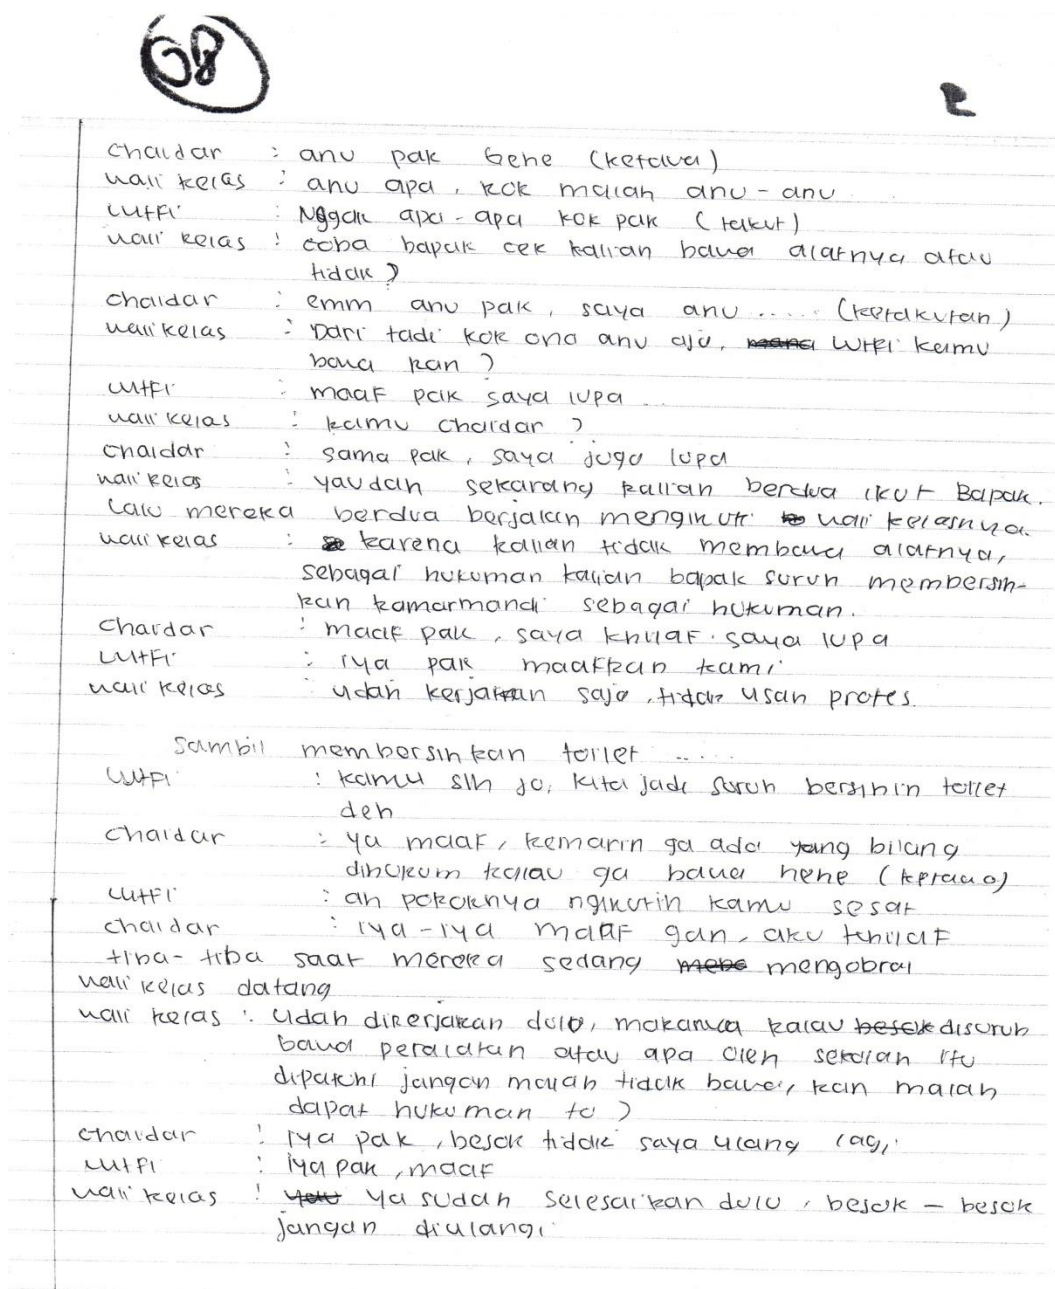 68
2
Chaidar : anu pak hehe (ketawa)
wali kelas : anu apa, kok malah anu-anu
Lutfi : Nggak apa-apa kok pak (takut)
wali kelas : coba bapak cek kalian bawa alatnya atau
tidak ?
chaidar : emm anu pak, saya anu ..... (ketakutan)
wali kelas : Dari tadi kok ona anu aja, Lutfi kamu
bawa kan ?
Lutfi : maaf pak saya lupa ...
wali kelas : kamu chaidar ?
chaidar : sama pak, saya juga lupa
wali kelas : yaudah sekarang kalian berdua ikut Bapak.
Lalu mereka berdua berjalan mengikuti wali kelasnya.
wali kelas : karena kalian tidak membawa alatnya,
sebagai hukuman kalian bapak suruh membersih-
kan kamarmandi sebagai hukuman.
Chaidar : maaf pak, saya khilaf. saya lupa
Lutfi : iya pak maafkan kami
wali kelas : udah kerjakan saja, tidak usah protes.
Sambil membersihkan toilet .....
Lutfi : kamu sih jo, kita jadi suruh bersihin toilet
deh
Chaidar : ya maaf, kemarin ga ada yang bilang
dihukum kalau ga bawa hehe (ketawa)
Lutfi : ah pokoknya ngikutin kamu sesat
chaidar : iya-iya maaf gan, aku khilaf
tiba-tiba saat mereka sedang mengobrol
wali kelas datang
wali kelas : Udah dikerjakan dulu, makanya kalau disuruh
bawa peralatan atau apa oleh sekolah itu
dipatuhi jangan malah tidak bawa, kan malah
dapat hukuman to ?
chaidar : iya pak, besok tidak saya ulang lagi
Lutfi : iya pak, maaf
wali kelas : ya sudah selesaikan dulu, besok - besok
jangan diulangi